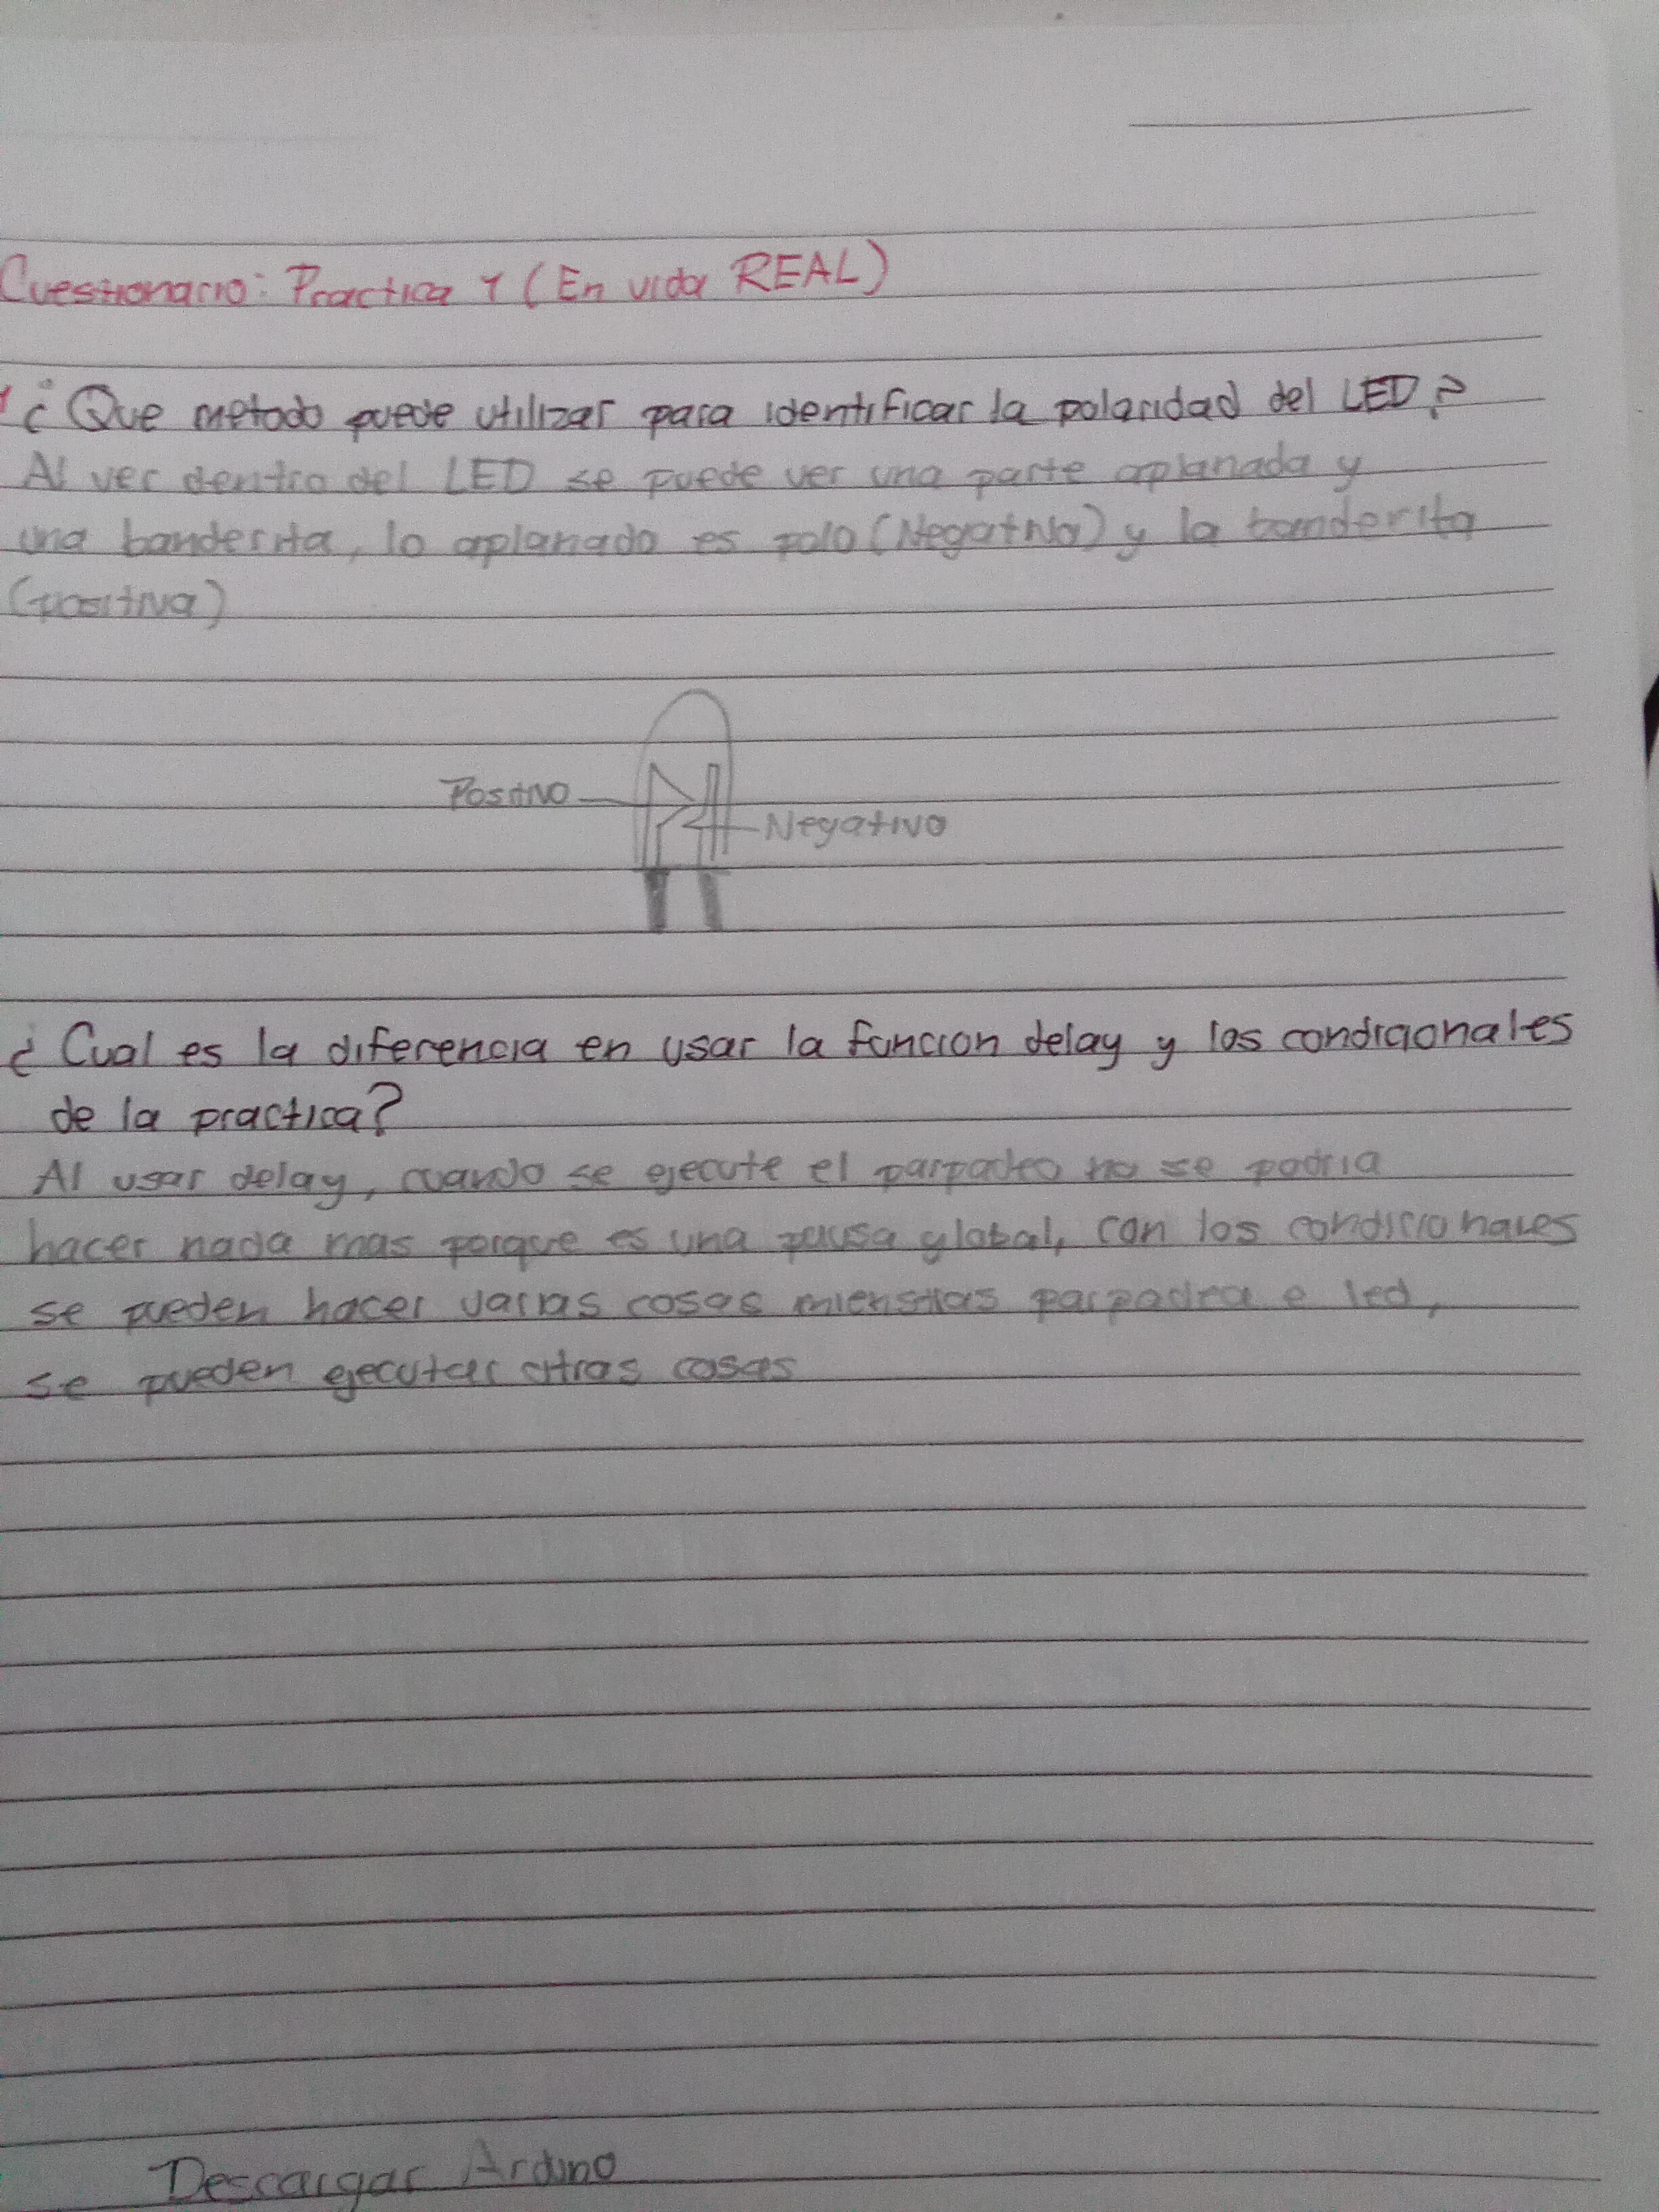 Cuestionario: Practica 1 (En vida REAL)
1 ¿Que metodo puede utilizar para identificar la polaridad del LED?
Al ver dentro del LED se puede ver una parte aplanada y
una banderita, lo aplanado es polo (Negativa) y la banderita
(positiva)
Positivo
Negativo
¿Cual es la diferencia en usar la funcion delay y los condicionales
de la practica?
Al usar delay, cuando se ejecute el parpadeo no se podria
hacer nada mas porque es una pausa global, con los condicionales
se pueden hacer varias cosas mienstras parpadea e led,
se pueden ejecutar otras cosas
Descargar Arduino